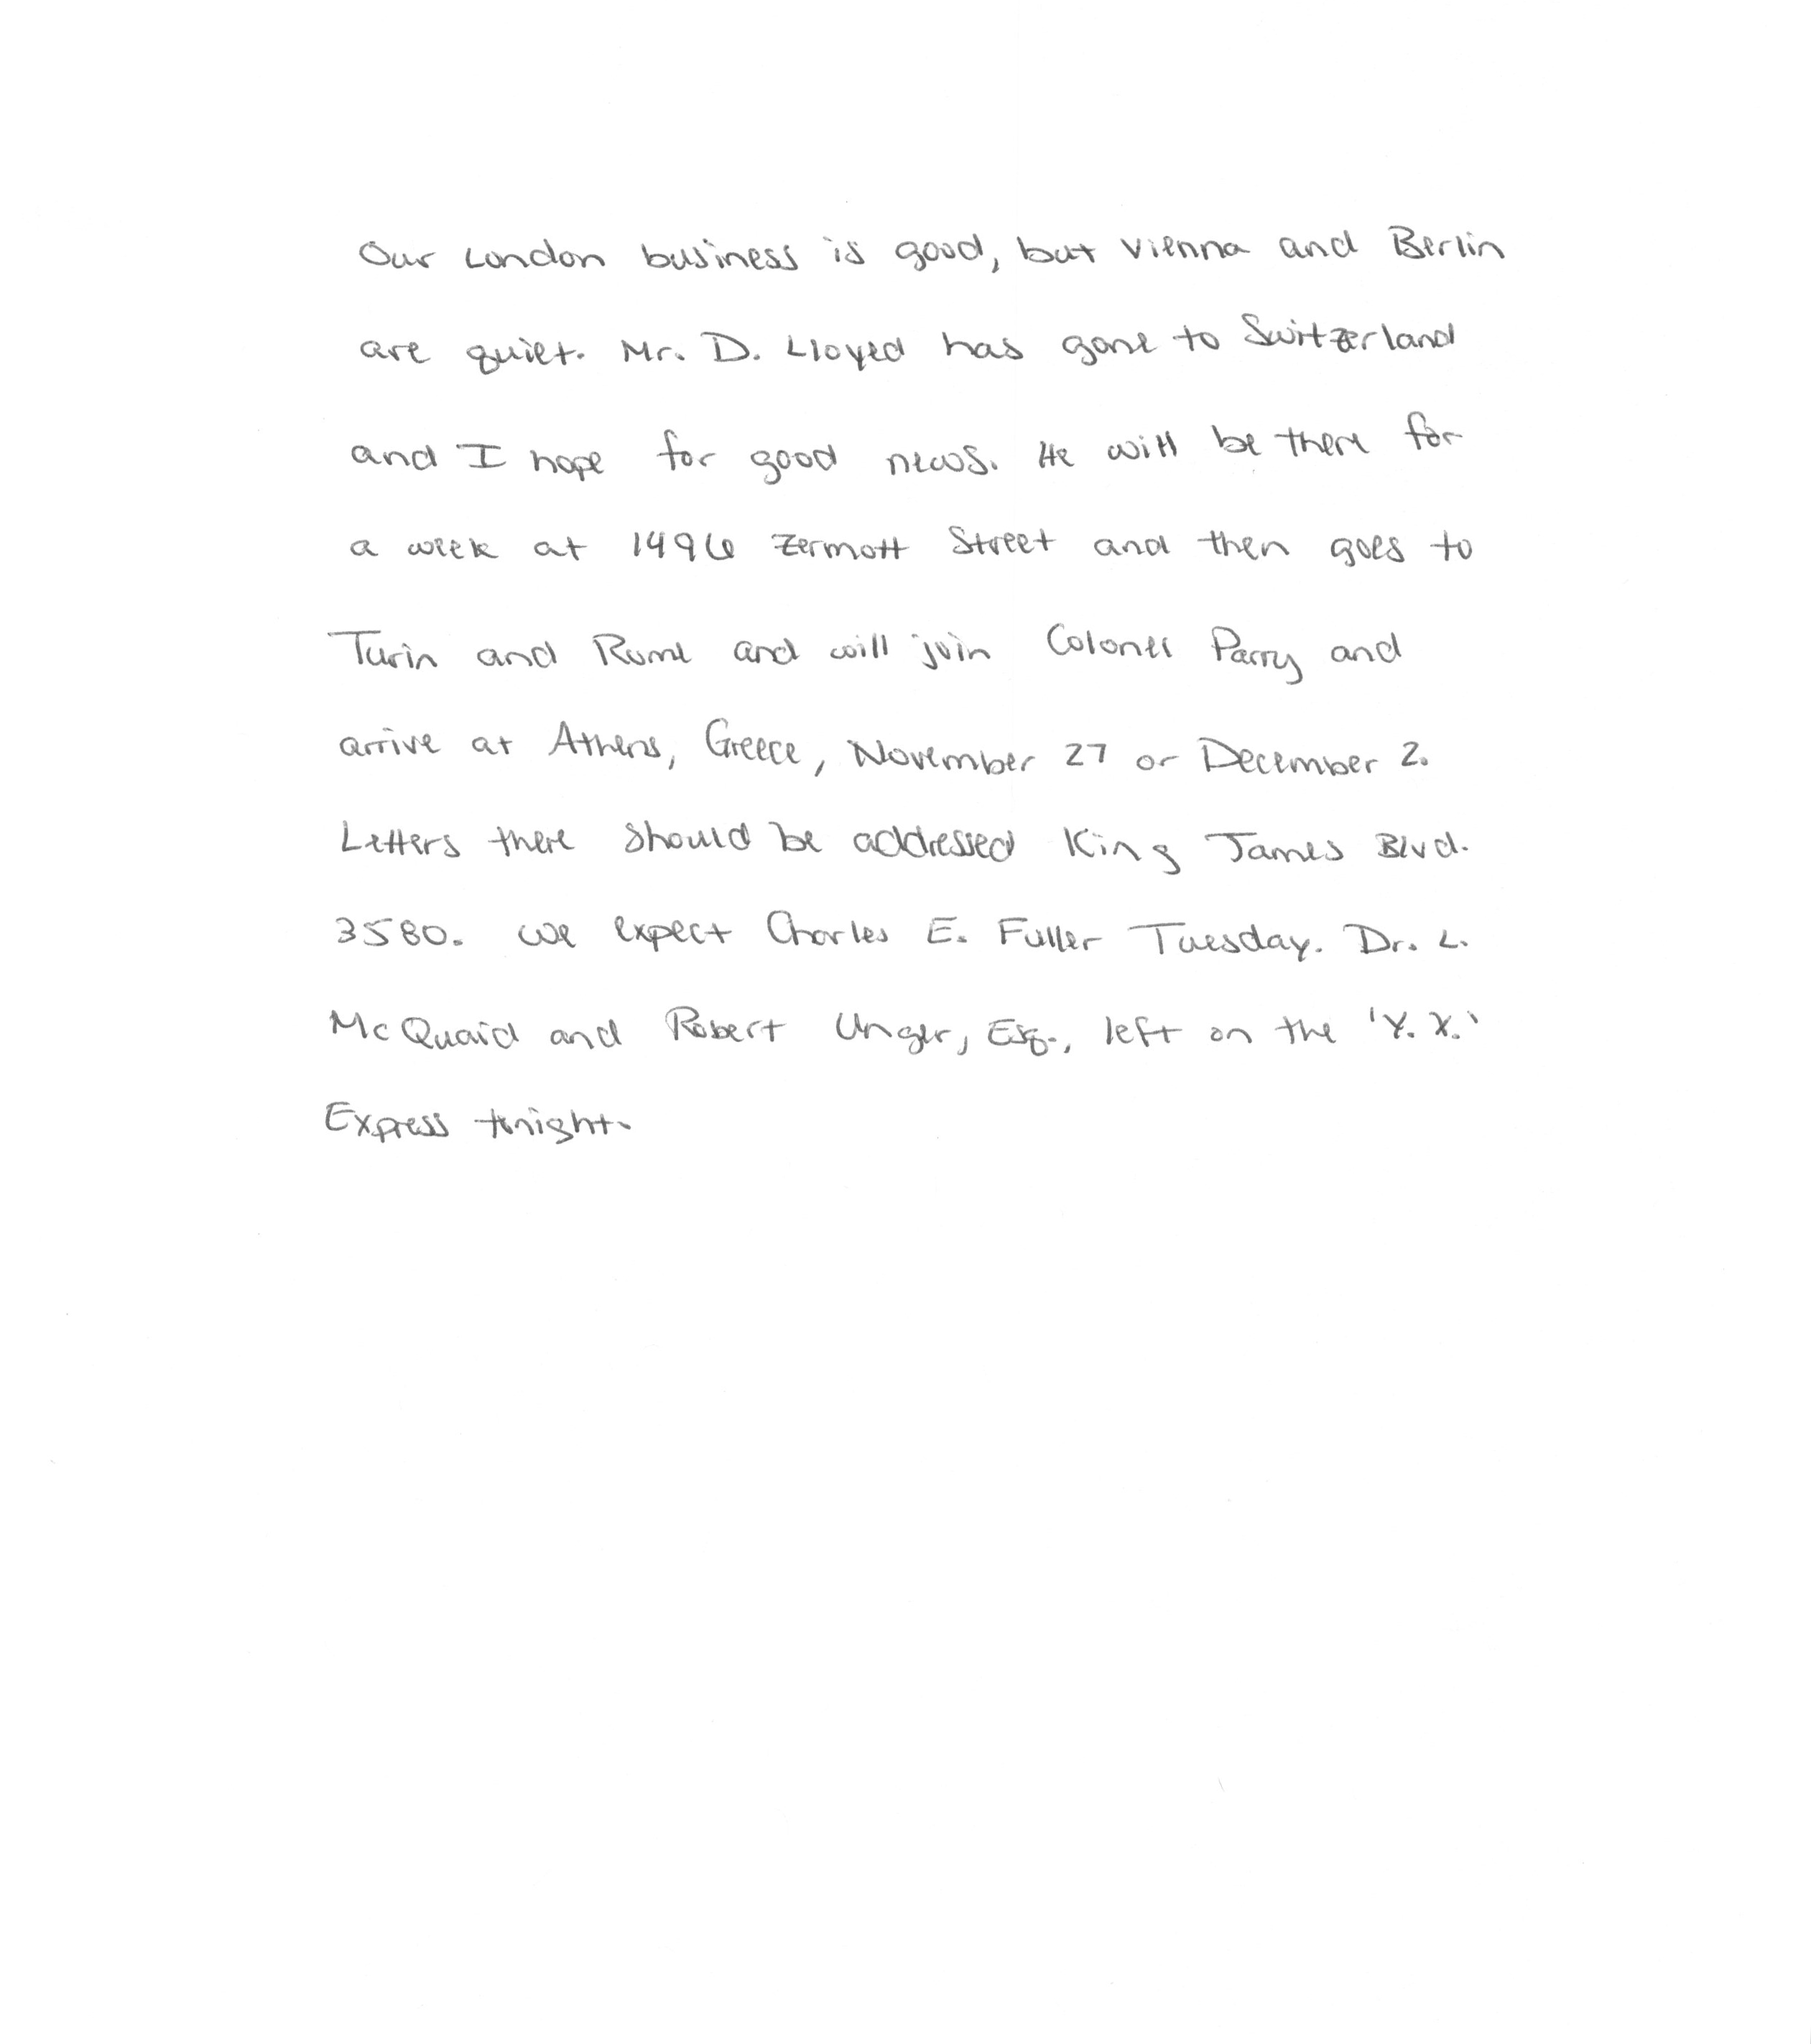 Our London business is good, but Vienna and Berlin
are quiet. Mr. D. Lloyed has gone to Switzerland
and I hope for good news. He will be there for
a week at 1496 Zermott Street and then goes to
Turin and Rome and will join Colonel Parry and
arrive at Athens, Greece, November 27 or December 2.
Letters there should be addressed King James Blvd.
3580. We expect Charles E. Fuller Tuesday. Dr. L.
McQuaid and Robert Unger, Esq., left on the 'Y. X.'
Express tonight.